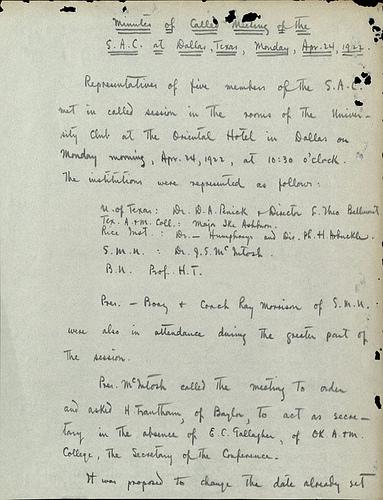 Minutes of Called Meeting of the
S.A.C. at Dallas, Texas, Monday, Apr. 24, 1922.
Representatives of five members of the S.A.C.
met in called session in the rooms of the Univer-
sity Club at the Oriental Hotel in Dallas on
Monday morning, Apr. 24, 1922, at 10:30 o'clock.
The institutions were represented as follows:
U. of Texas: Dr. D.A. Penick & Director L. Theo Bellmont
Tex. A. & M. Coll.: Major Ike Ashburn.
Rice Inst.: Dr. — Humphreys and Dir. Ph. H. Arbuckle.
S.M.U.: Dr. J.S. McIntosh.
B.U. Prof. H.T.
Pres. — Boaz & Coach Ray Morrison of S.M.U.
were also in attendance during the greater part of
the session.
Pres. McIntosh called the meeting to order
and asked H. Trantham, of Baylor, to act as secre-
tary in the absence of E.C. Gallagher, of Ok. A. & M.
College, the Secretary of the Conference.
It was proposed to change the date already set